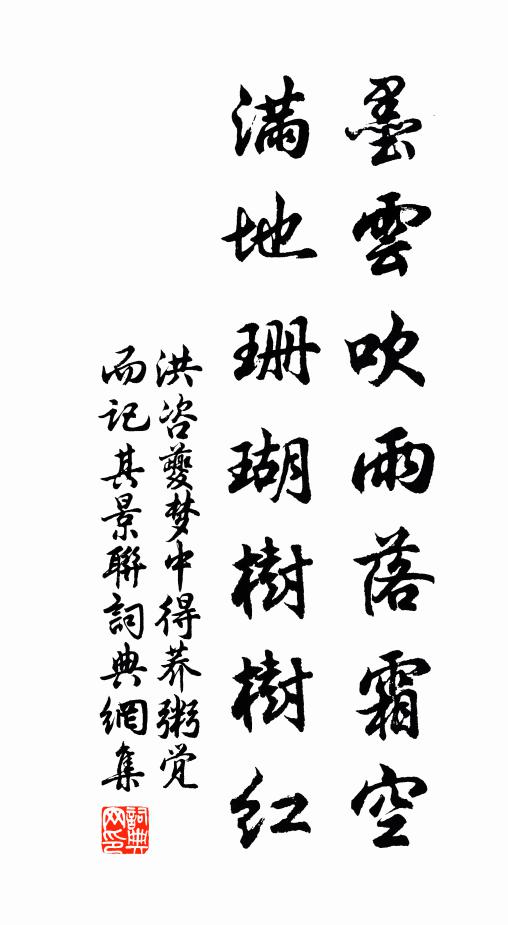 墨雲吹雨落霜空
滿地珊瑚樹樹紅
洪咨夔梦中得荞粥觉
而记其景聯詞典網集
詞典网印